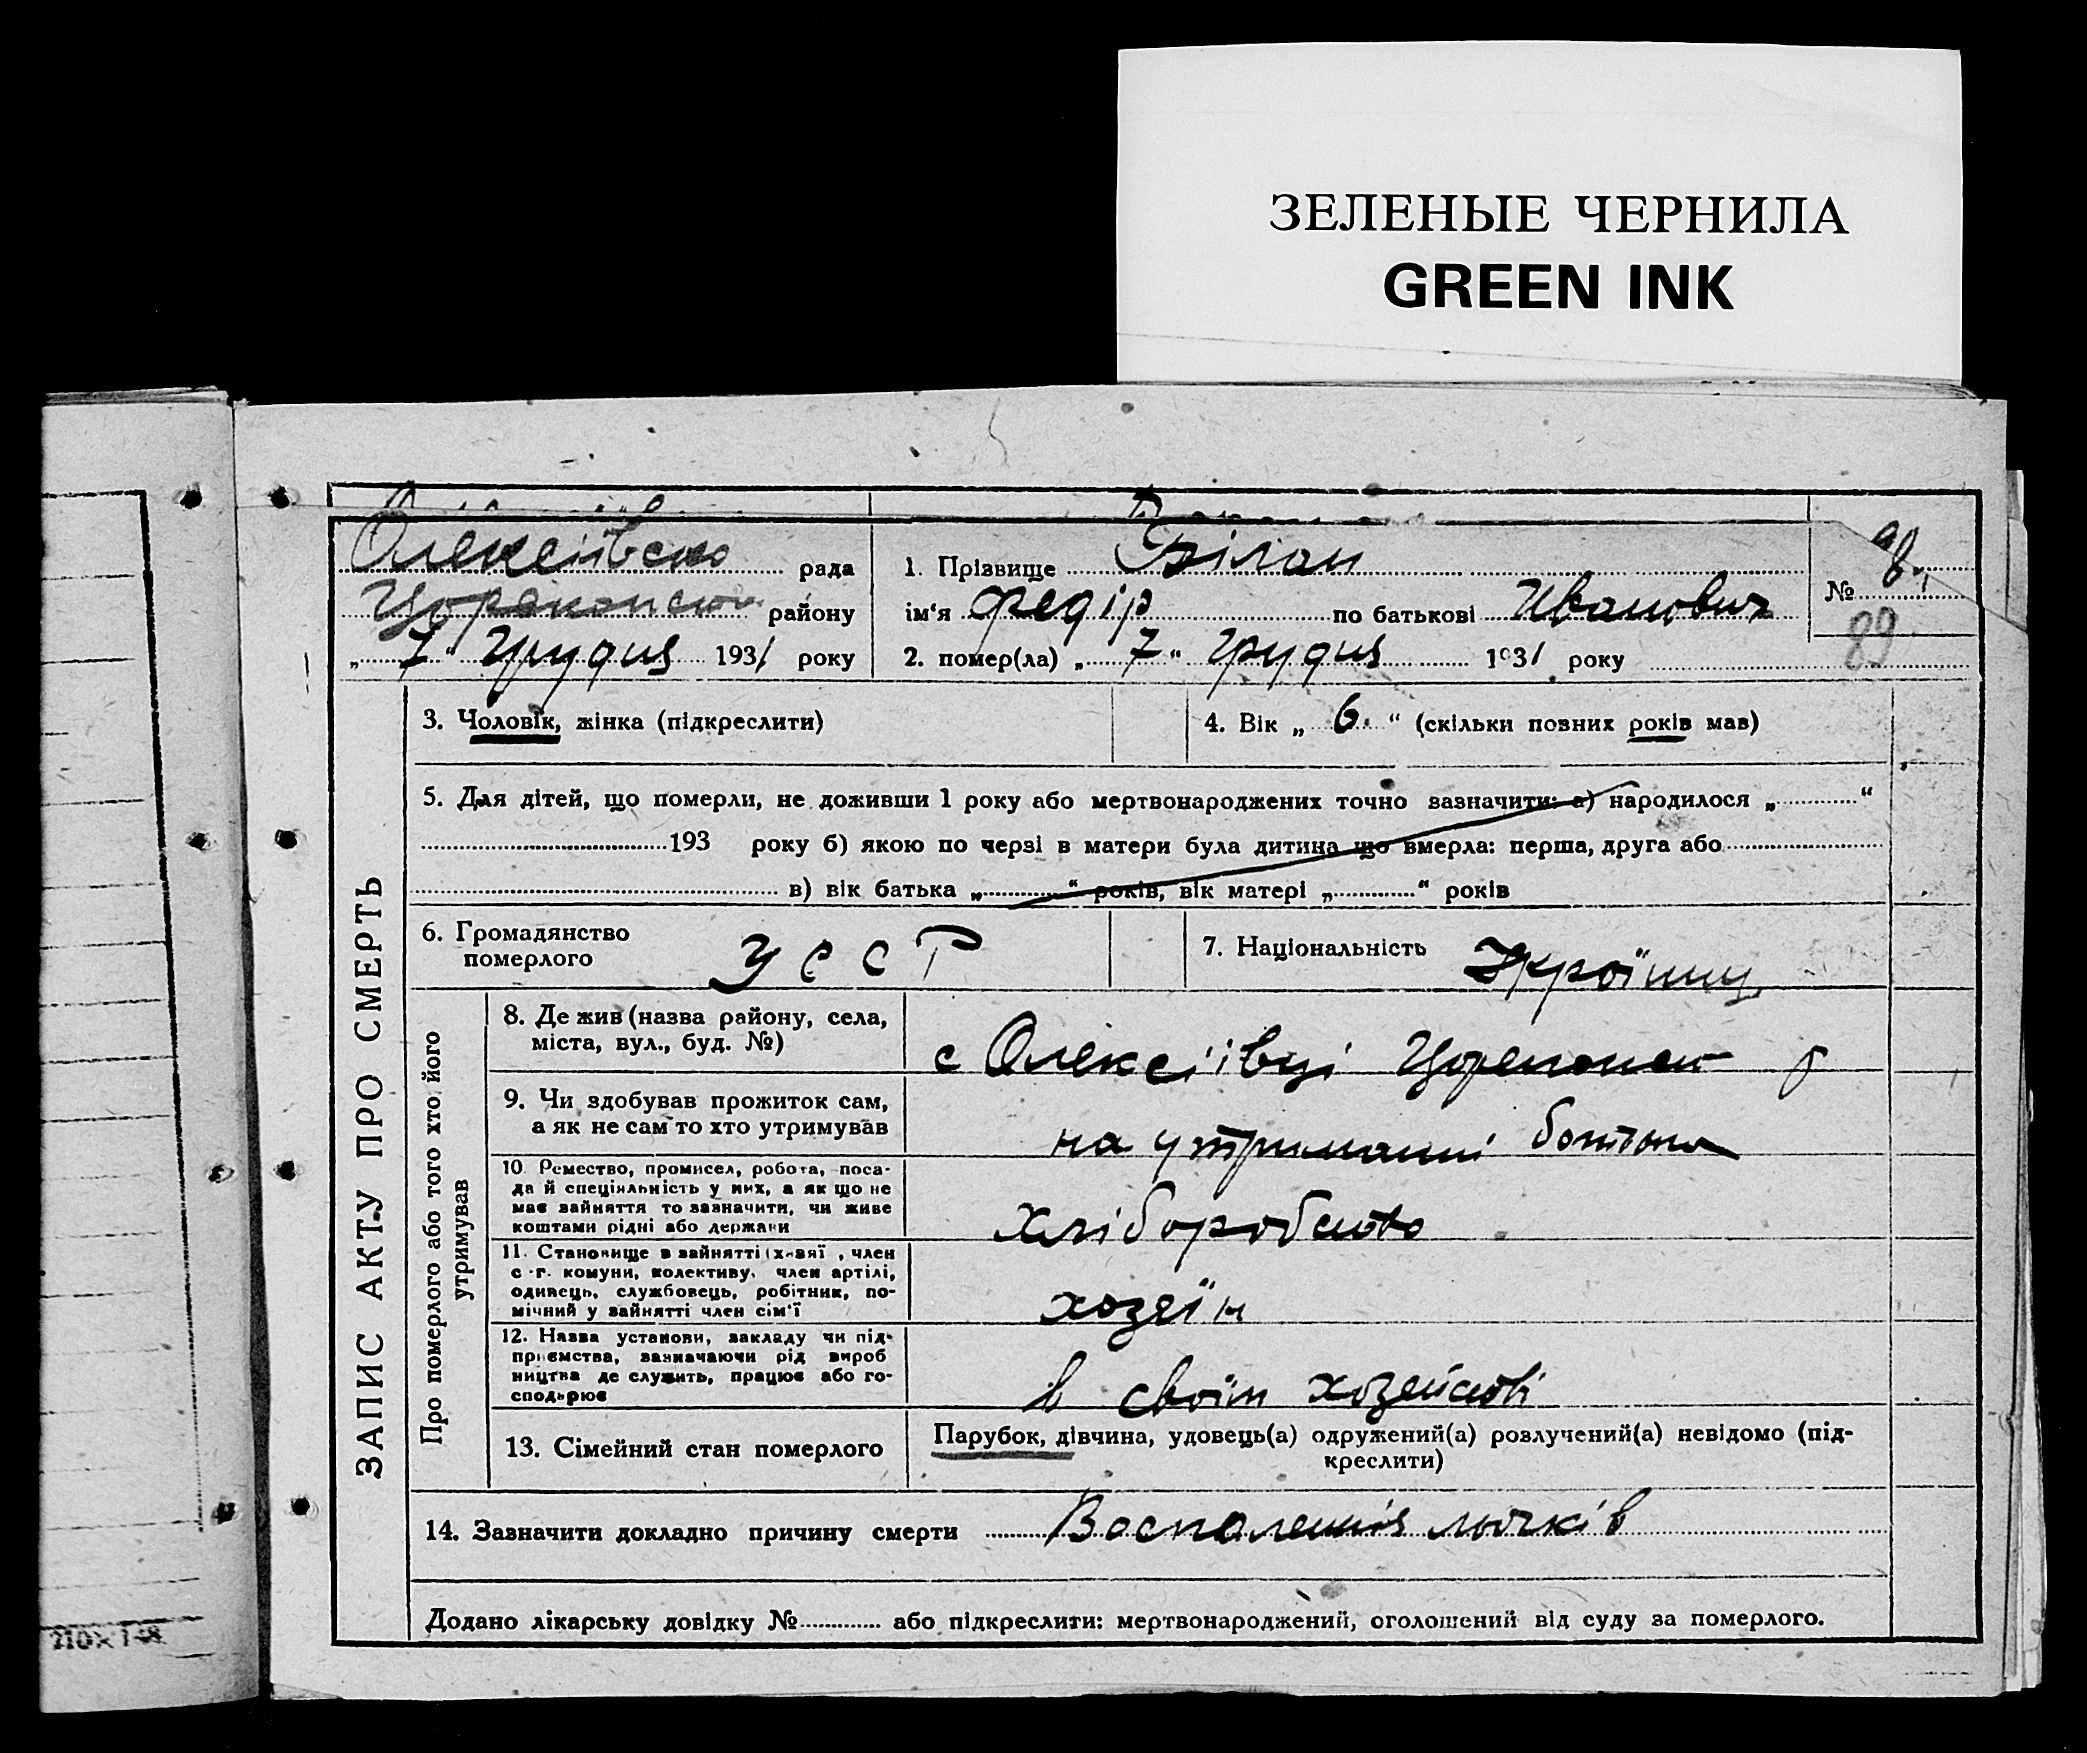 ЗЕЛЕНЫЕ ЧЕРНИЛА
GREEN INK
Олексіївсько рада
району
„ 7 “ Грудня 1931 року
1. Прізвище Білан
ім‘я Федір по батькові Иванович
2. помер(ла) „ 7 “ Грудня 1931 року
№ 98.
89
ЗАПИС АКТУ ПРО СМЕРТЬ
3. Чоловік, жінка (підкреслити)
4. Вік „ 6 “ (скільки повних років мав)
5. Для дітей, що померли, не доживши 1 року або мертвонароджених точно зазначити: а) народилося „ “
193 року б) якою по черзі в матери була дитина що вмерла: перша, друга або
в) вік батька „ “ років, вік матері „ “ років
6. Громадянство
померлого
УССР
7. Національність
Про померлого або того хто його
утримував
8. Де жив (назва району, села,
міста, вул., буд. №)
с Олексіївці р
9. Чи здобував прожиток сам,
а як не сам то хто утримував
на утриманні батька
10. Ремество, промисел, робота, поса-
да й спеціяльність у них, а як що не
має зайняття то зазначити, чи живе
коштами рідні або держави
хліборобство
11. Становище в зайнятті (х-зяї , член
с.-г. комуни, колективу, член артілі,
одинець, службовець, робітник, по-
мічний у зайнятті член сім'ї
хозяїн
12. Назва установи, закладу чи під-
приємства, зазначаючи рід вироб
ництва де служить, працює або го-
сподарює
в своїм хозействі
13. Сімейний стан померлого
Парубок, дівчина, удовець(а) одружений(а) розлучений(а) невідомо (під-
креслити)
14. Зазначити докладно причину смерти Воспаления льочків
Додано лікарську довідку № або підкреслити: мертвонароджений, оголошений від суду за померлого.
210×148